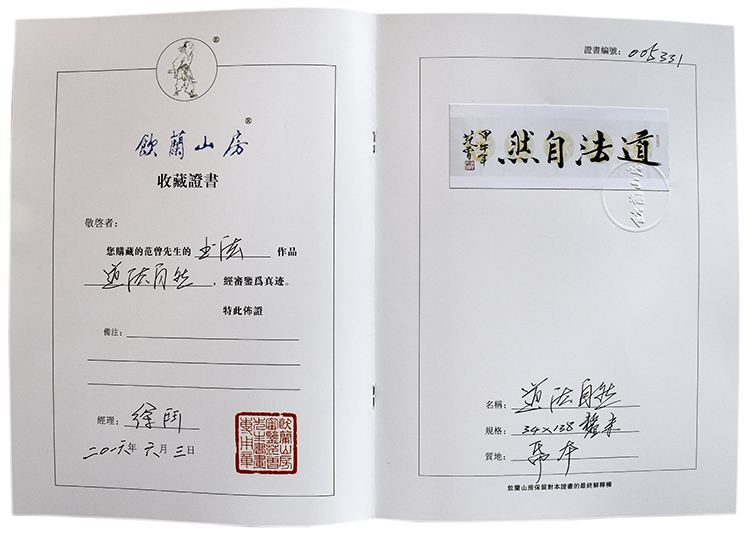 ®
飲蘭山房®
收藏證書
敬啓者：
您購藏的范曾先生的 书法 作品
道法自然，經審鑒爲真迹。
特此佈證
備注：
經理：徐闩
二〇一六年 六月三日
飲蘭山房
審鑒范曾
先生書畫
專用章
證書編號：005331
道法自然
甲午年
范曾
飲蘭山房
名稱：道法自然
規格：34×138 釐米
質地：纸本
飲蘭山房保留對本證書的最終解釋權